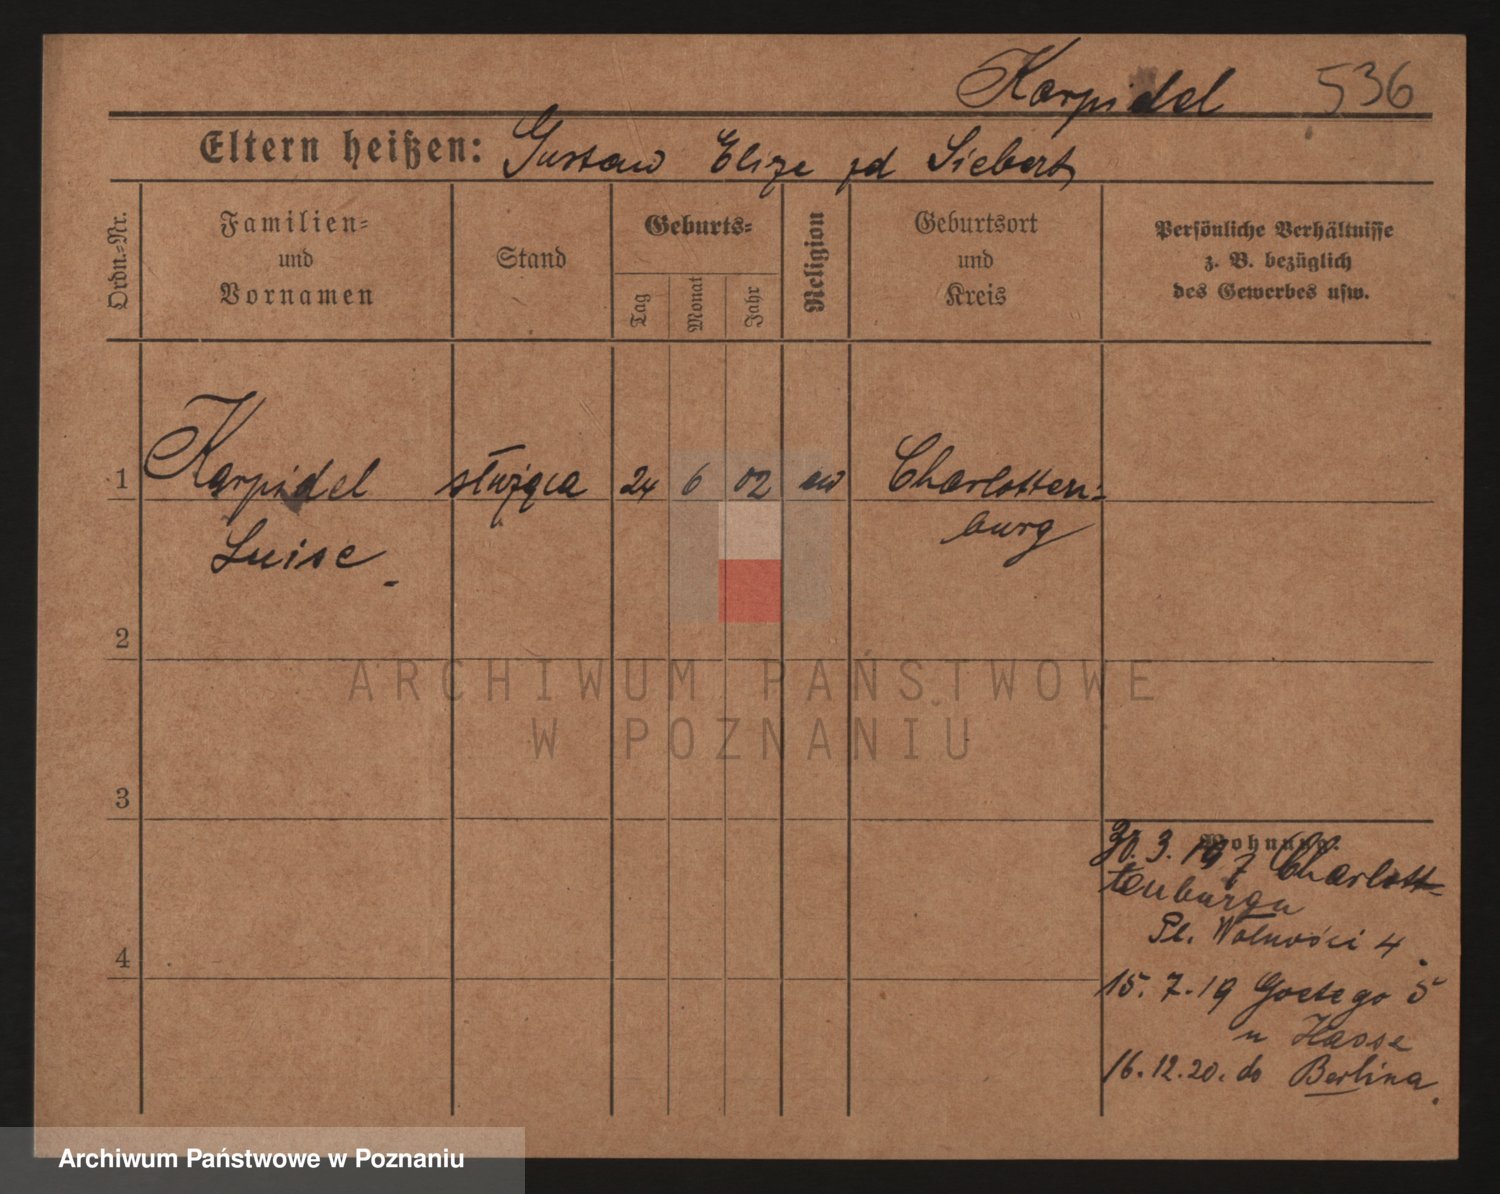 Karpidel 536
Eltern heißen: Gustaw Elize zd Siebert
Ordn.-Nr.
Familien- und Vornamen
Stand
Geburts-
Tag Monat Jahr
Religion
Geburtsort und Kreis
Persönliche Verhältnisse
z. B. bezüglich
des Gewerbes usw.
1 Karpidel służąca 24 6 02 ew Charlotten-
Luise burg
2
ARCHIWUM PAŃSTWOWE
W POZNANIU
3
Wohnung.
30. 3. 19 z Charlott-
tenburgu
Pl. Wolności 4.
4
15. 7. 19 Goetego 5
u Hasse
16. 12. 20. do Berlina.
Archiwum Państwowe w Poznaniu